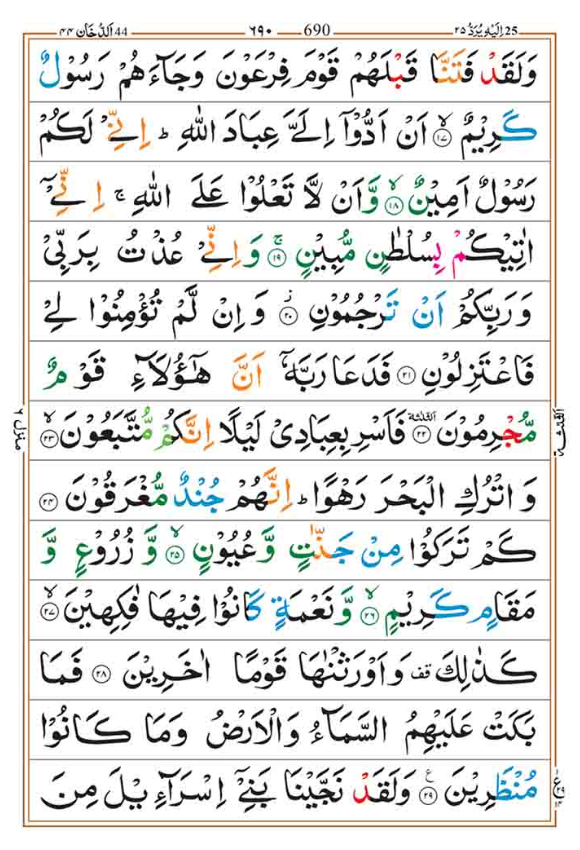 ٤٤ اَلدُّخَان 44 ٦٩٠ 690 اِلَيْهِ يُرَدُّ ٢٥ 25
وَلَقَدْ فَتَنَّا قَبْلَهُمْ قَوْمَ فِرْعَوْنَ وَجَآءَهُمْ رَسُوْلٌ
كَرِيْمٌ ۙ‏﴿۱۷﴾ اَنْ اَدُّوْۤا اِلَىَّ عِبَادَ اللّٰهِ‌ؕ اِنِّىْ لَكُمْ
رَسُوْلٌ اَمِيْنٌۙ‏ ﴿۱۸﴾ وَّاَنْ لَّا تَعْلُوْا عَلَى اللّٰهِ‌ۚ اِنِّىْۤ
اٰتِيْكُمْ بِسُلْطٰنٍ مُّبِيْنٍ‌ۚ‏ ﴿۱۹﴾ وَاِنِّىْ عُذْتُ بِرَبِّىْ
وَرَبِّكُمْ اَنْ تَرْجُمُوْنِ‏ ﴿۲۰﴾ وَاِنْ لَّمْ تُؤْمِنُوْا لِىْ
فَاعْتَزِلُوْنِ‏ ﴿۲۱﴾ فَدَعَا رَبَّهٗۤ اَنَّ هٰٓؤُلَاۤءِ قَوْمٌ
مُّجْرِمُوْنَ ﴿۲۲﴾ فَاَسْرِ بِعِبَادِىْ لَيْلًا اِنَّكُمْ مُّتَّبَعُوْنَۙ‏ ﴿۲۳﴾
وَاتْرُكِ الْبَحْرَ رَهْوًا‌ؕ اِنَّهُمْ جُنْدٌ مُّغْرَقُوْنَ‏ ﴿۲۴﴾
كَمْ تَرَكُوْا مِنْ جَنّٰتٍ وَّعُيُوْنٍۙ‏ ﴿۲۵﴾ وَّزُرُوْعٍ وَّ
مَقَامٍ كَرِيْمٍۙ‏ ﴿۲۶﴾ وَّنَعْمَةٍ كَانُوْا فِيْهَا فٰكِهِيْنَۙ‏ ﴿۲۷﴾
كَذٰلِكَ قف وَاَوْرَثْنٰهَا قَوْمًا اٰخَرِيْنَ‏ ﴿۲۸﴾ فَمَا
بَكَتْ عَلَيْهِمُ السَّمَآءُ وَالْاَرْضُ وَمَا كَانُوْا
مُنْظَرِيْنَ‏ ﴿۲۹﴾ وَلَقَدْ نَجَّيْنَا بَنِىْۤ اِسْرَآءِيْلَ مِنَ